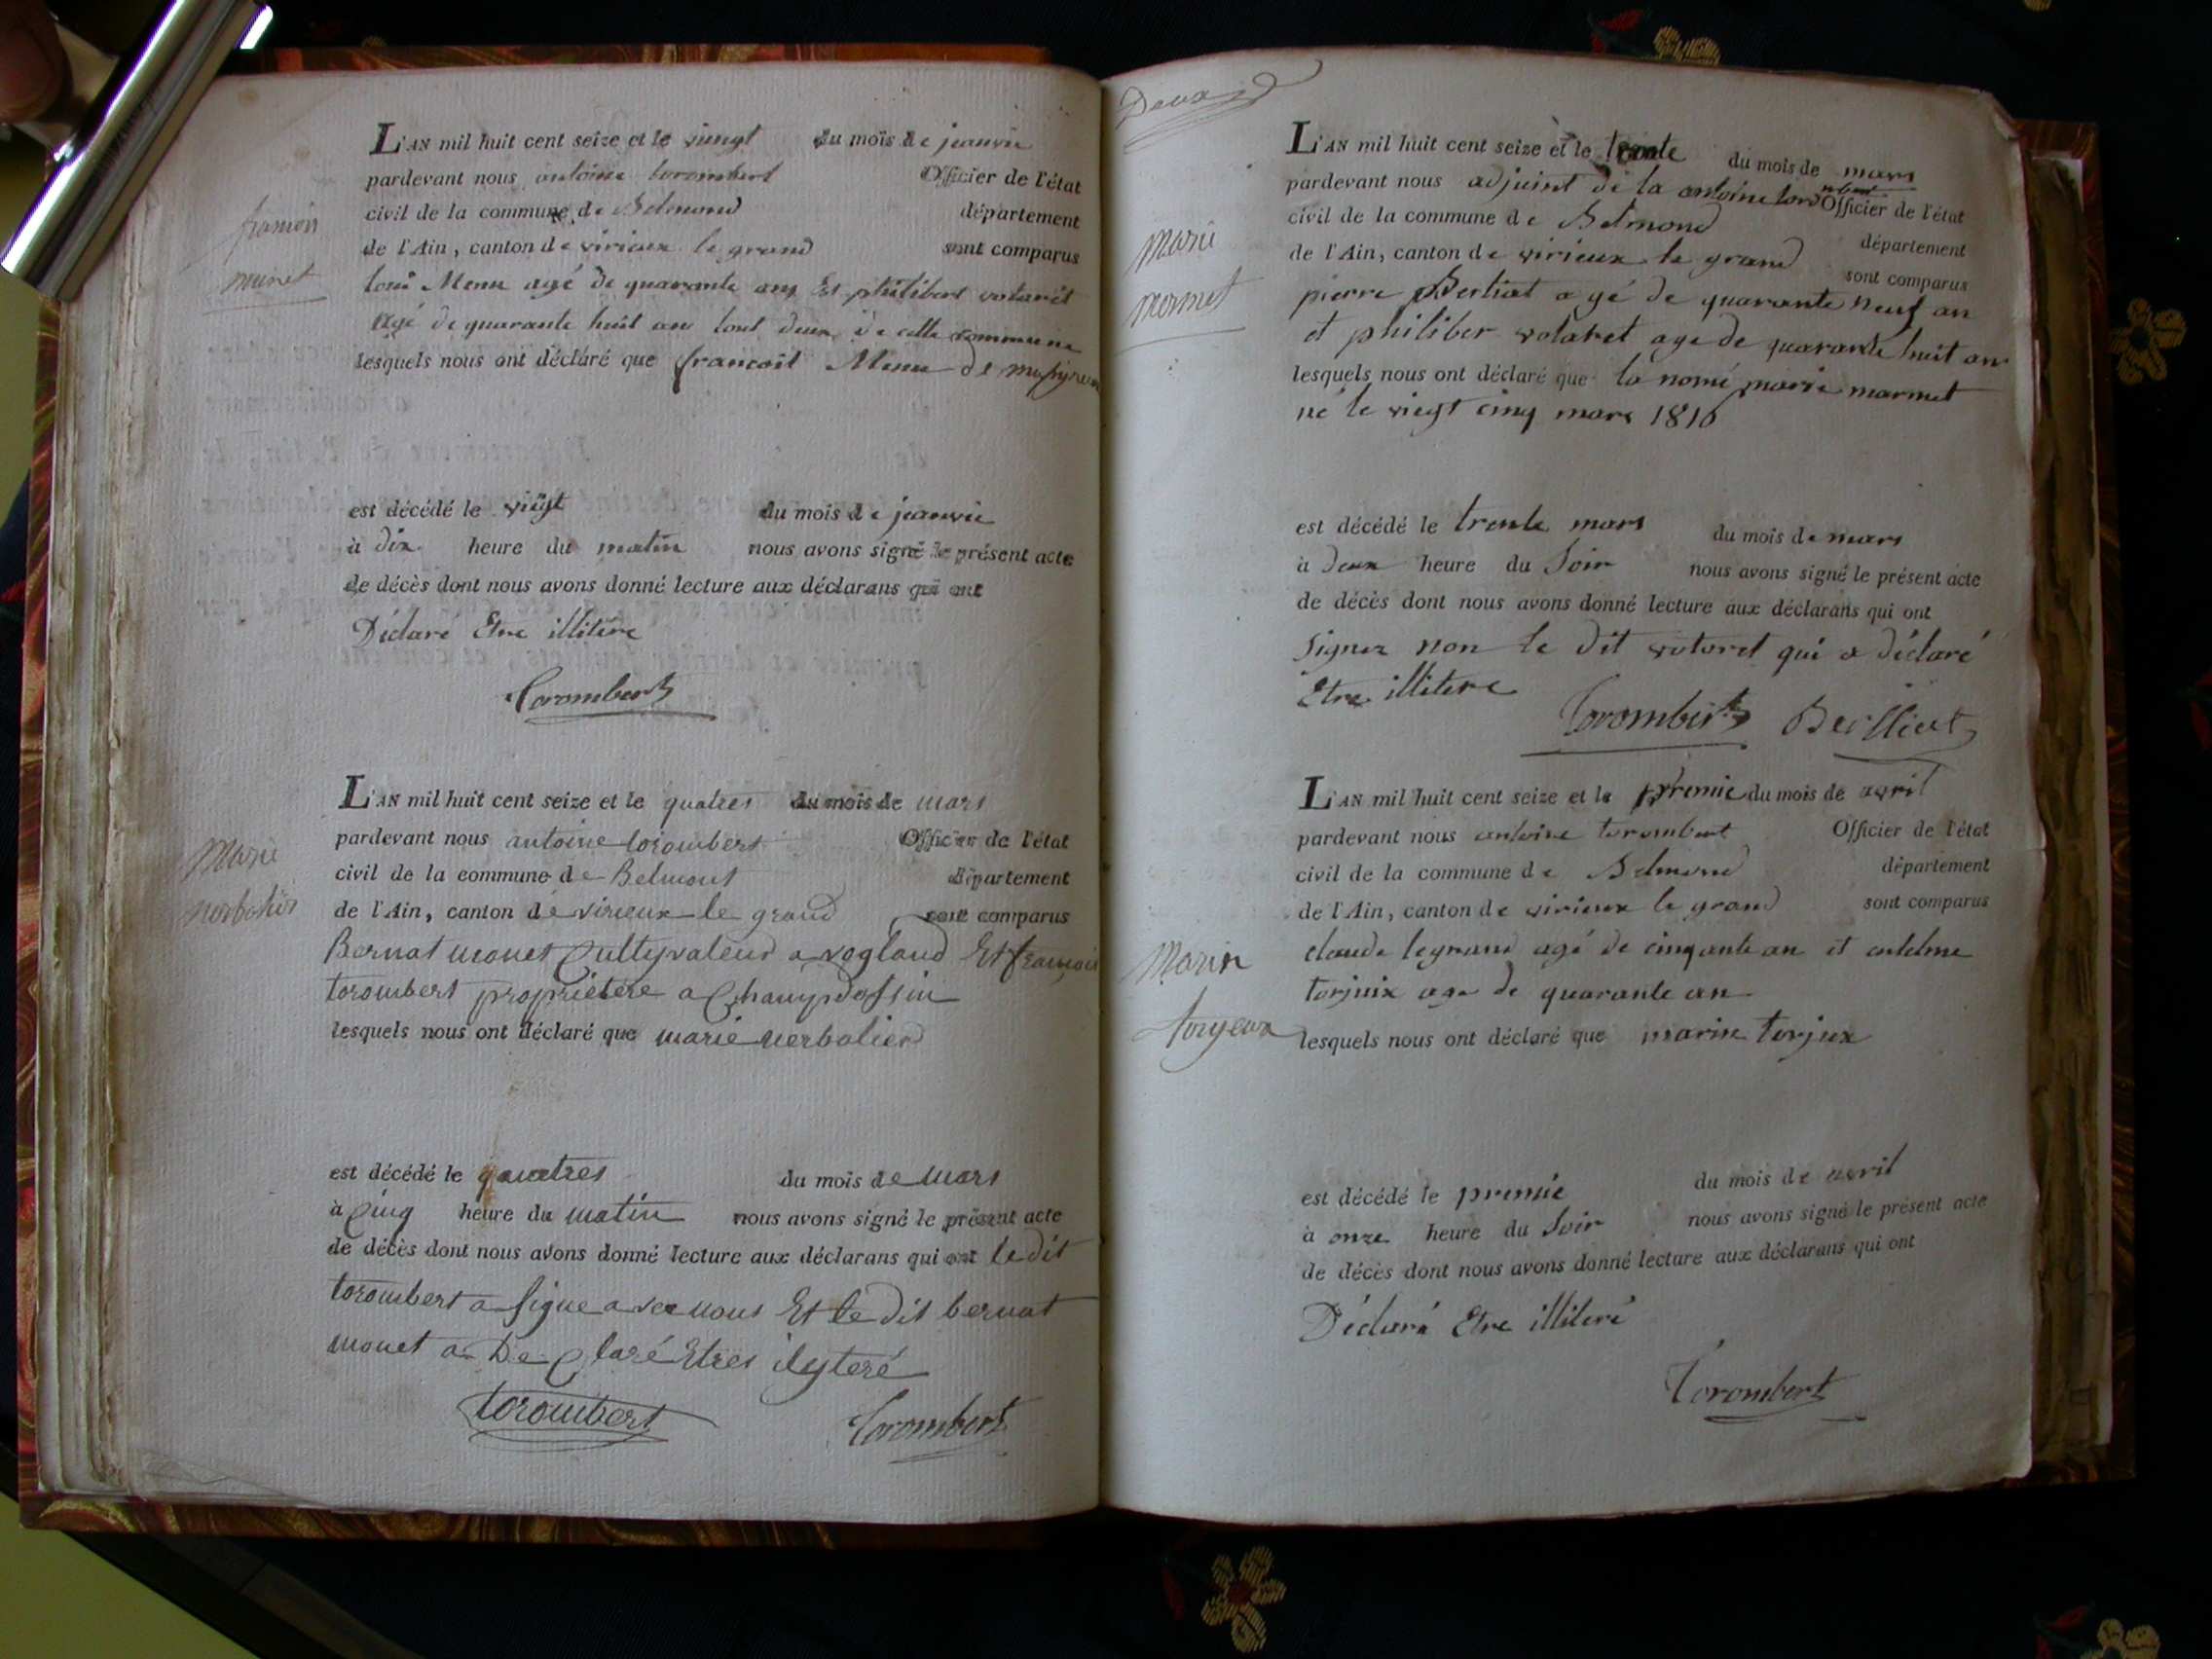 L'AN mil huit cent seize et le vingt du mois de janvie
pardevant nous antoine torombert Officier de l'état
civil de la commune de Belmond département
de l'Ain, canton de virieux le grand sont comparus
françois
munet
agé de quarante ans Et philibert votaret
agé de quarante huit ans tout deux de cette commune
lesquels nous ont déclaré que francoit
est décédé le vingt du mois de janvie
à dix heure du matin nous avons signé le présent acte
de décès dont nous avons donné lecture aux déclarans qui ont
Déclaré Etre illitère
Torombert
L'AN mil huit cent seize et le quatres du mois de mars
pardevant nous antoine torombert Officier de l'état
civil de la commune de Belmont département
de l'Ain, canton de virieux le grand sont comparus
Marie
Bernat monet Cultyvateur a vogland Et françois
torombert proprietere a Champdossin
lesquels nous ont déclaré que marie nerbolier
est décédé le quatres du mois de mars
à Cinq heure du matin nous avons signé le présent acte
de décès dont nous avons donné lecture aux déclarans qui ont le dit
torombert a signe avec nous Et le dit bernat
monet a De Claré Etres ilyteré
torombert Torombert
Deux
L'AN mil huit cent seize et le trente du mois de mars
pardevant nous adjoint de la antoine torombert Officier de l'état
civil de la commune de Belmond département
de l'Ain, canton de virieux le grand sont comparus
Marie
mormet
pierre Bertiat agé de quarante neuf an
et philiber votaret age de quarante huit an
lesquels nous ont déclaré que la nomé marie marmet
né le viegt cinq mars 1816
est décédé le trente mars du mois de mars
à deux heure du Soir nous avons signé le présent acte
de décès dont nous avons donné lecture aux déclarans qui ont
signez non le dit votaret qui a déclaré
Etre illitere
Torombert Berlliat
L'AN mil huit cent seize et le premie du mois de avril
pardevant nous antoine torombert Officier de l'état
civil de la commune de Belmond département
de l'Ain, canton de virieux le grand sont comparus
Marin
torjeux
claude legrand agé de cinqante an et antelme
torjuix age de quarante an
lesquels nous ont déclaré que marin torjux
est décédé le premie du mois de avril
à onze heure du Soir nous avons signé le présent acte
de décès dont nous avons donné lecture aux déclarans qui ont
Déclaré Etre illiteré
Torombert